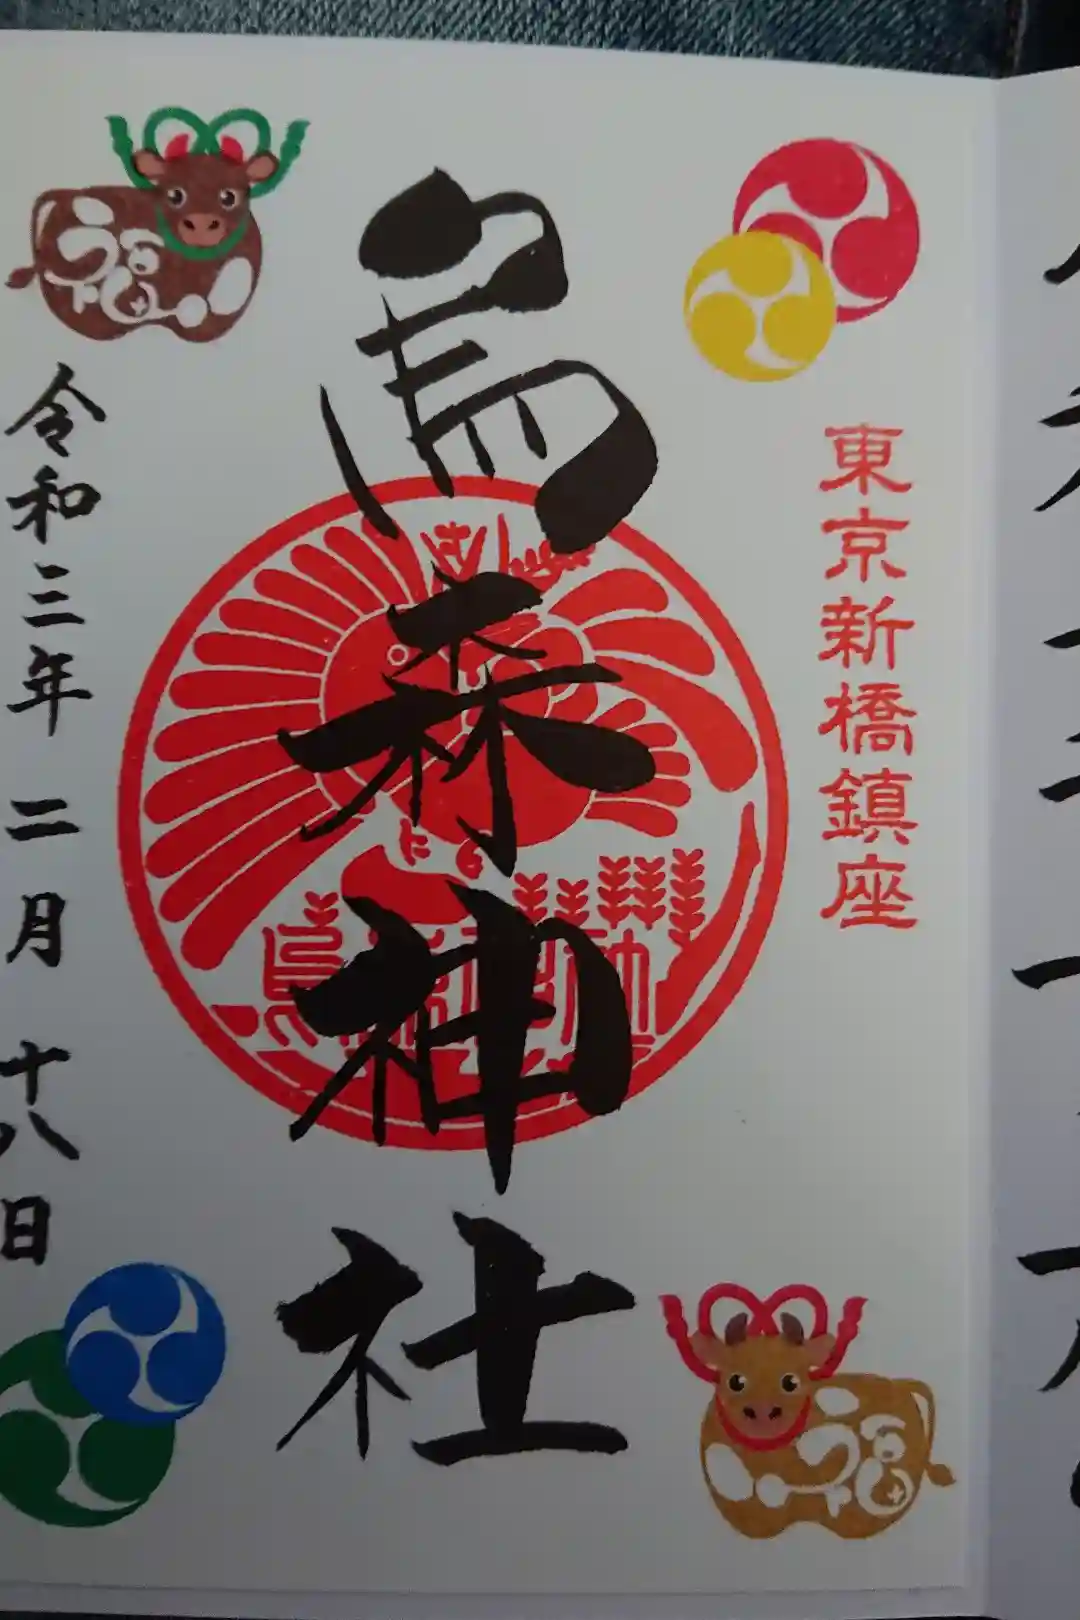 東京新橋鎮座
烏森神社
令和三年二月十八日
福
福